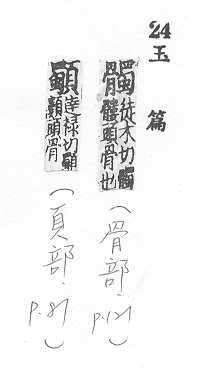 24
玉篇
髑徒木切髑髏頭骨也
(骨部. p.121)
達祿切顱頭骨
(頁部. p.81)